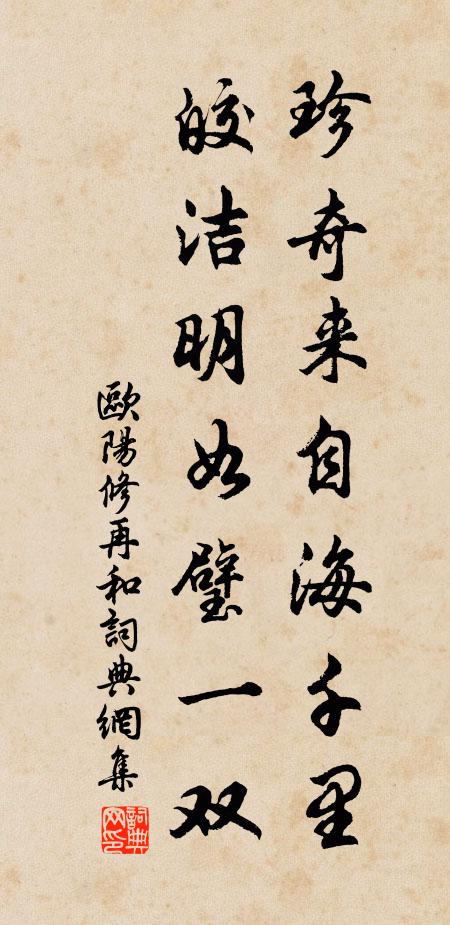 珍奇来自海千里
皎洁明如璧一双
歐陽修再和詞典網集
詞典
网印